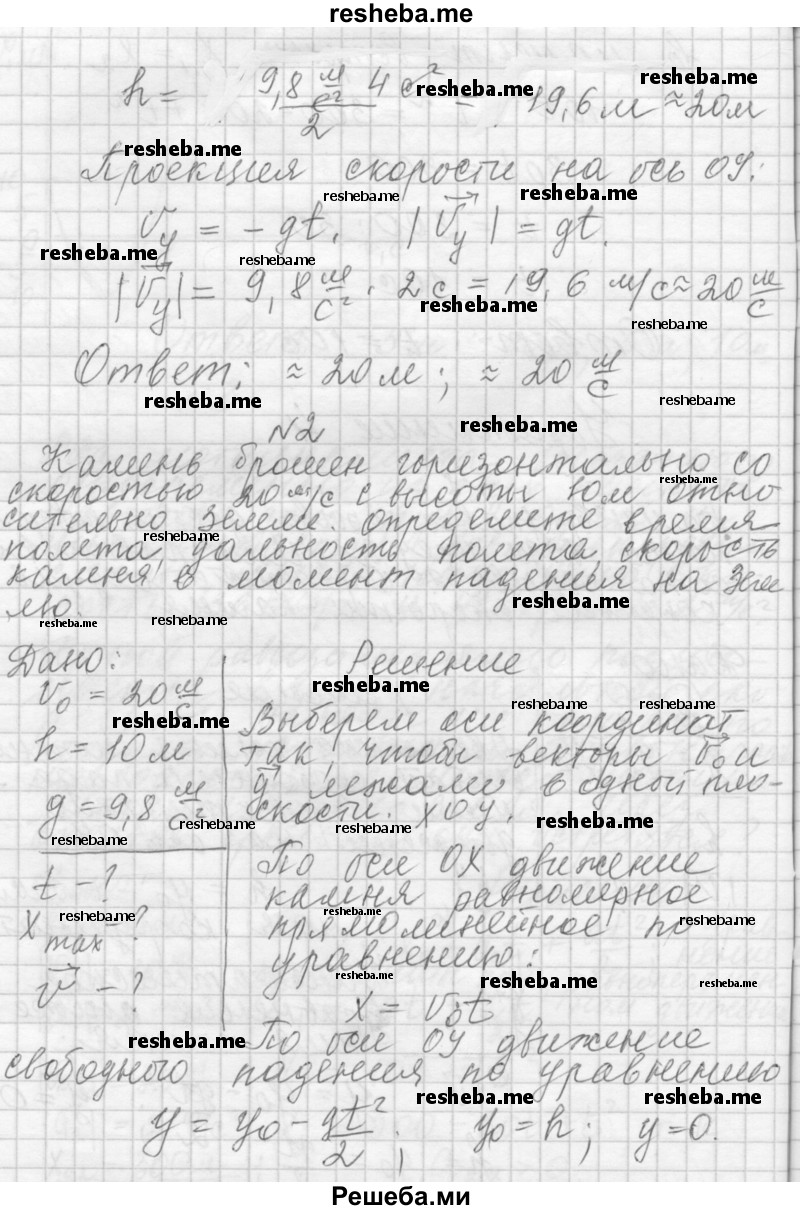 resheba.me
h = 9,8 м/с² 4 с² / 2 = 19,6 м ≈ 20 м
Проекция скорости на ось OY:
v_y = - gt. |v_y| = gt.
|v_y| = 9,8 м/с² · 2 с = 19,6 м/с ≈ 20 м/с
Ответ: ≈ 20 м; ≈ 20 м/с
N2
Камень брошен горизонтально со
скоростью 20 м/с с высоты 10 м отно
сительно Земли. Определите время
полета, дальность полета, скорость
камня в момент падения на Зем
лю.
Дано:
v₀ = 20 м/с
h = 10 м
g = 9,8 м/с²
t - ?
x_max - ?
v - ?
Решение
Выберем оси координат
так, чтобы векторы v₀ и
g лежали в одной пло-
скости. xOy.
По оси OX движение
камня равномерное
прямолинейное по
уравнению:
x = v₀t
По оси OY движение
свободного падения по уравнению
y = y₀ - gt²/2; y₀ = h; y = 0.
Решеба.ми